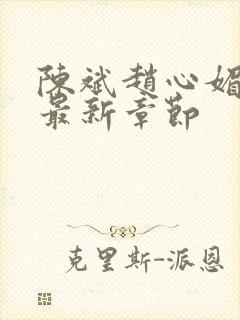 陳斌趙心媚
最新章節
克里斯-派恩